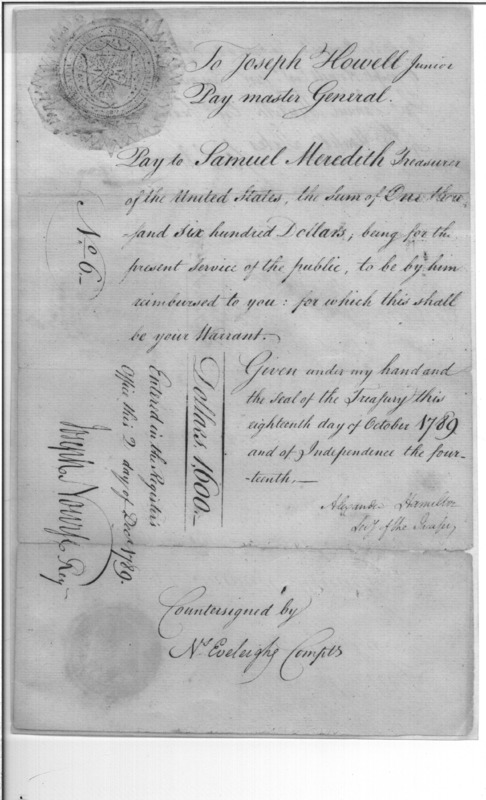 To Joseph Howell Junior
Pay master General.
Pay to Samuel Meredith Treasurer
of the United States, the Sum of One thou
-sand six hundred Dollars; being for the
present service of the public, to be by him
reimbursed to you: for which this shall
be your Warrant.-
Given under my hand and
the seal of the Treasury this
eighteenth day of October 1789
and of Independence the four-
teenth,-
Alexander Hamilton
Secy of the Treasury
No. 6.-
Dollars 1,600.-
Entered in the Registers
Office this 2 day of Decr. 1789.
Joseph Nourse Reg-
Countersigned by
Ns. Eveleigh Compts